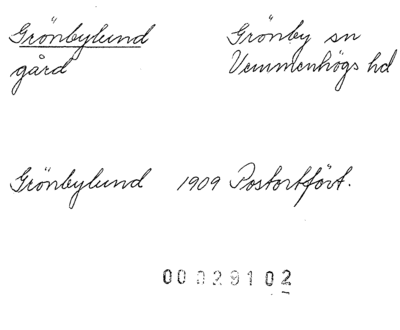 Grönbylund Grönby sn
gård Vemmenhögs hd
Grönbylund 1909 Postortfört.
00029102